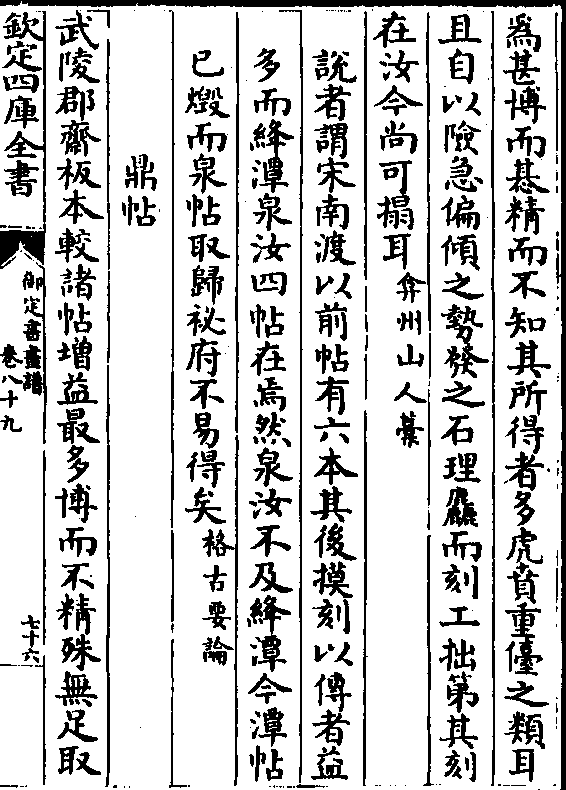 爲甚博而甚精而不知其所得者多虎賁重儓之類耳
且自以險急偏傾之勢發之石理麤而刻工拙第其刻
在汝今尚可搨耳弇州山人藁
說者謂宋南渡以前帖有六本其後摸刻以傳者益
多而絳潭泉汝四帖在焉然泉汝不及絳潭今潭帖
已燬而泉帖取歸祕府不易得矣格古要論
鼎帖
武陵郡齋板本較諸帖增益最多博而不精殊無足取
欽定四庫全書
御定書畫譜
卷八十九
七十六